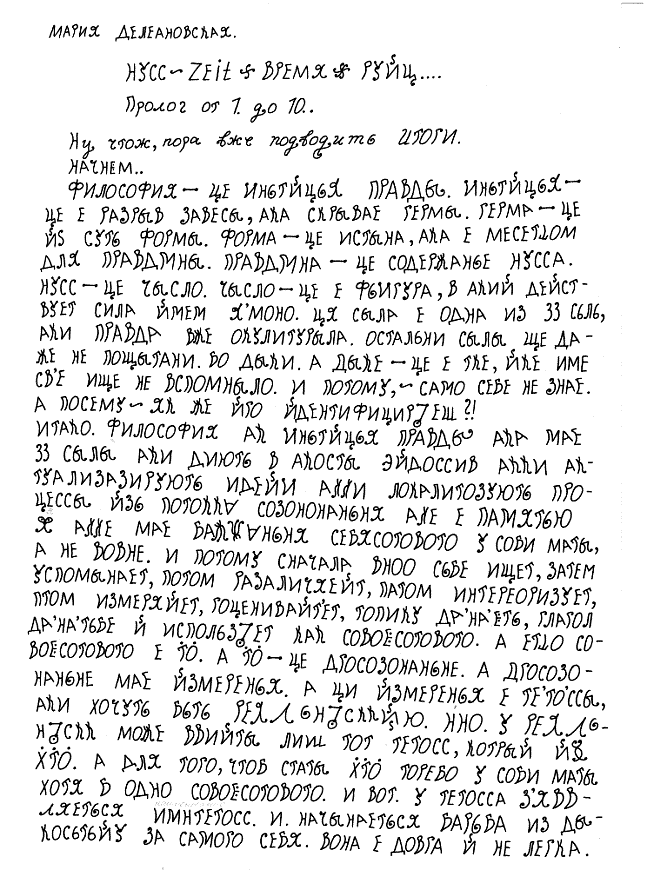 МАРИЯ ДЕЛЕАНОВСКАЯ.
НУСС – ZEit ВРЕМЯ РУЙЦ....
Пролог от 1. до 10..
Ну, чтож, пора вже подводить ИТОГИ.
НАЧНЕМ..
ФИЛОСОФИЯ – ЦЕ ИНЬТЙЦЫЯ ПРАВДЫ. ИНЬТЙЦЫЯ –
ЦЕ Е РАЗРЫВ ЗАВЕСЫ, АКА СКРЫВАЕ ГЕРМЫ. ГЕРМА – ЦЕ
СУТЬ ФОРМЫ. ФОРМА – ЦЕ ИСТЫНА, АКА Е
ДЛЯ – ЦЕ СОДЕРЖАНЬЕ НУССА.
НУСС – ЦЕ ЧЫСЛО. ЧЫСЛО – ЦЕ Е ФЫГУРА, В АКИЙ ДЕЙСТ-
ВУЕТ СИЛА ЙМЕМ Я'МОНО. ЦЯ СЫЛА Е ОДНА ИЗ 33 СЫЛЬ,
АКИ ПРАВДА ВЖЕ ОКУЛИТУРЫЛА. ОСТАЛЬНИ СЫЛЫ ЩЕ ДА-
ЖЕ НЕ ПОЩЫТАНИ. БО ДЫКИ. А ДЫКЕ – ЦЕ Е ТКЕ, ЙКЕ ИМЕ
СВ'Е ИЩЕ НЕ ВСПОМНЫЛО. И ПОТОМУ, – САМО СЕБЕ НЕ ЗНАЕ.
А ПОСЕМУ – ЯК ЖЕ ЙГО ?!
ИТАКО. ФИЛОСОФИЯ АК ИНЬТЙЦЫЯ ПРАВДЫ АКА МАЕ
33 СЫЛЫ АКИ ДИЮТЬ В АКОСТЫ ЭЙДОССИВ АККИ АК-
ТУАЛИЗАЗИРУЮТЬ ИДЕЙИ ЛОКАЛИТОЗУЮТЬ ПРО-
ЦЕССЫ ЙЗЬ СОЗОНОНАНЬНЯ АКЕ Е ПАМЯТЬЮ
Я АККЕ МАЕ СЕБЯСОТОВОТО У СОБИ МАТЫ,
А НЕ ВОВНЕ. И ПОТОМУ СНАЧАЛА ВНОО СЬВЕ ИЩЕТ, ЗАТЕМ
УСПОМЫНАЕТ, ПОТОМ РАЗАЛИЧХЕЙТ, ПАТОМ ИНТЕРЕОРИЗУЕТ,
ПТОМ ИЗМЕРЯЙЕТ, ТОПИКУ ДА'НА'ЕТЬ, ГЛАГОЛ
ДА'НА'ТЬВЕ Й КАК СОВОЕСОТОВОТО. А ЕТЦО СО-
ВОЕСОТОВОТО Е ТО. А ТО – ЦЕ ДГОСОЗОНАНЬНЕ. А ДГОСОЗО-
НАНЬНЕ МАЕ ЙЗМЕРЕНЬЯ. А ЦИ ЙЗМЕРЕНЬЯ Е ТЕ'ТО'ССЫ,
АКИ ХОЧУТЬ ВЬТЬ ННО. У
МОЖЕ ВВИЙТЫ ЛИШ ТОТ ТЕТОСС, КОТРЫЙ
ХТО. А ДЛЯ ТОГО, ЧТОБ СТАТЫ ХТО ТОРЕБО У СОБИ МАТЫ
ХОТЯ Б ОДНО СОВОЕСОТОВОТО. И ВОТ. У ТЕТОССА З'ЯВВ-
ЛЯЕТЬСЯ ИМНТЕТОСС. И. НАЧЫНАЕТЬСЯ ВАРЬВА ИЗ ДЫ-
КОСЬТЬЙУ ЗА САМОГО СЕБЯ. ВОНА Е ДОВГА Й НЕ ЛЕГКА.